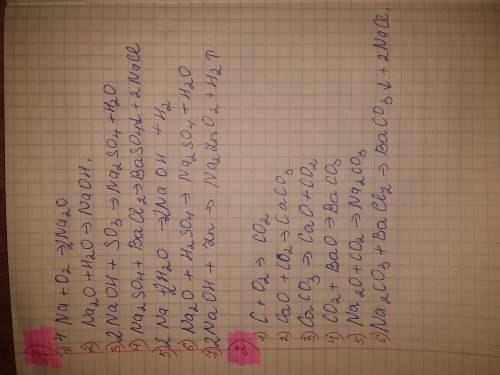 1)
1) 4 Na + O2 → 2Na2O
2) Na2O + H2O → NaOH.
3) 2NaOH + SO3 → Na2SO4 + H2O
4) Na2SO4 + BaCl2 → BaSO4↓ + 2NaCl
5) 2 Na + 2H2O → 2NaOH + H2
6) Na2O + H2SO4 → Na2SO4 + H2O
7) 2NaOH + Zn → Na2ZnO2 + H2↑
2)
1) C + O2 → CO2
2) CaO + CO2 → CaCO3
3) CaCO3 → CaO + CO2
4) CO2 + BaO → BaCO3
5) Na2O + CO2 → Na2CO3
6) Na2CO3 + BaCl2 → BaCO3↓ + 2NaCl.